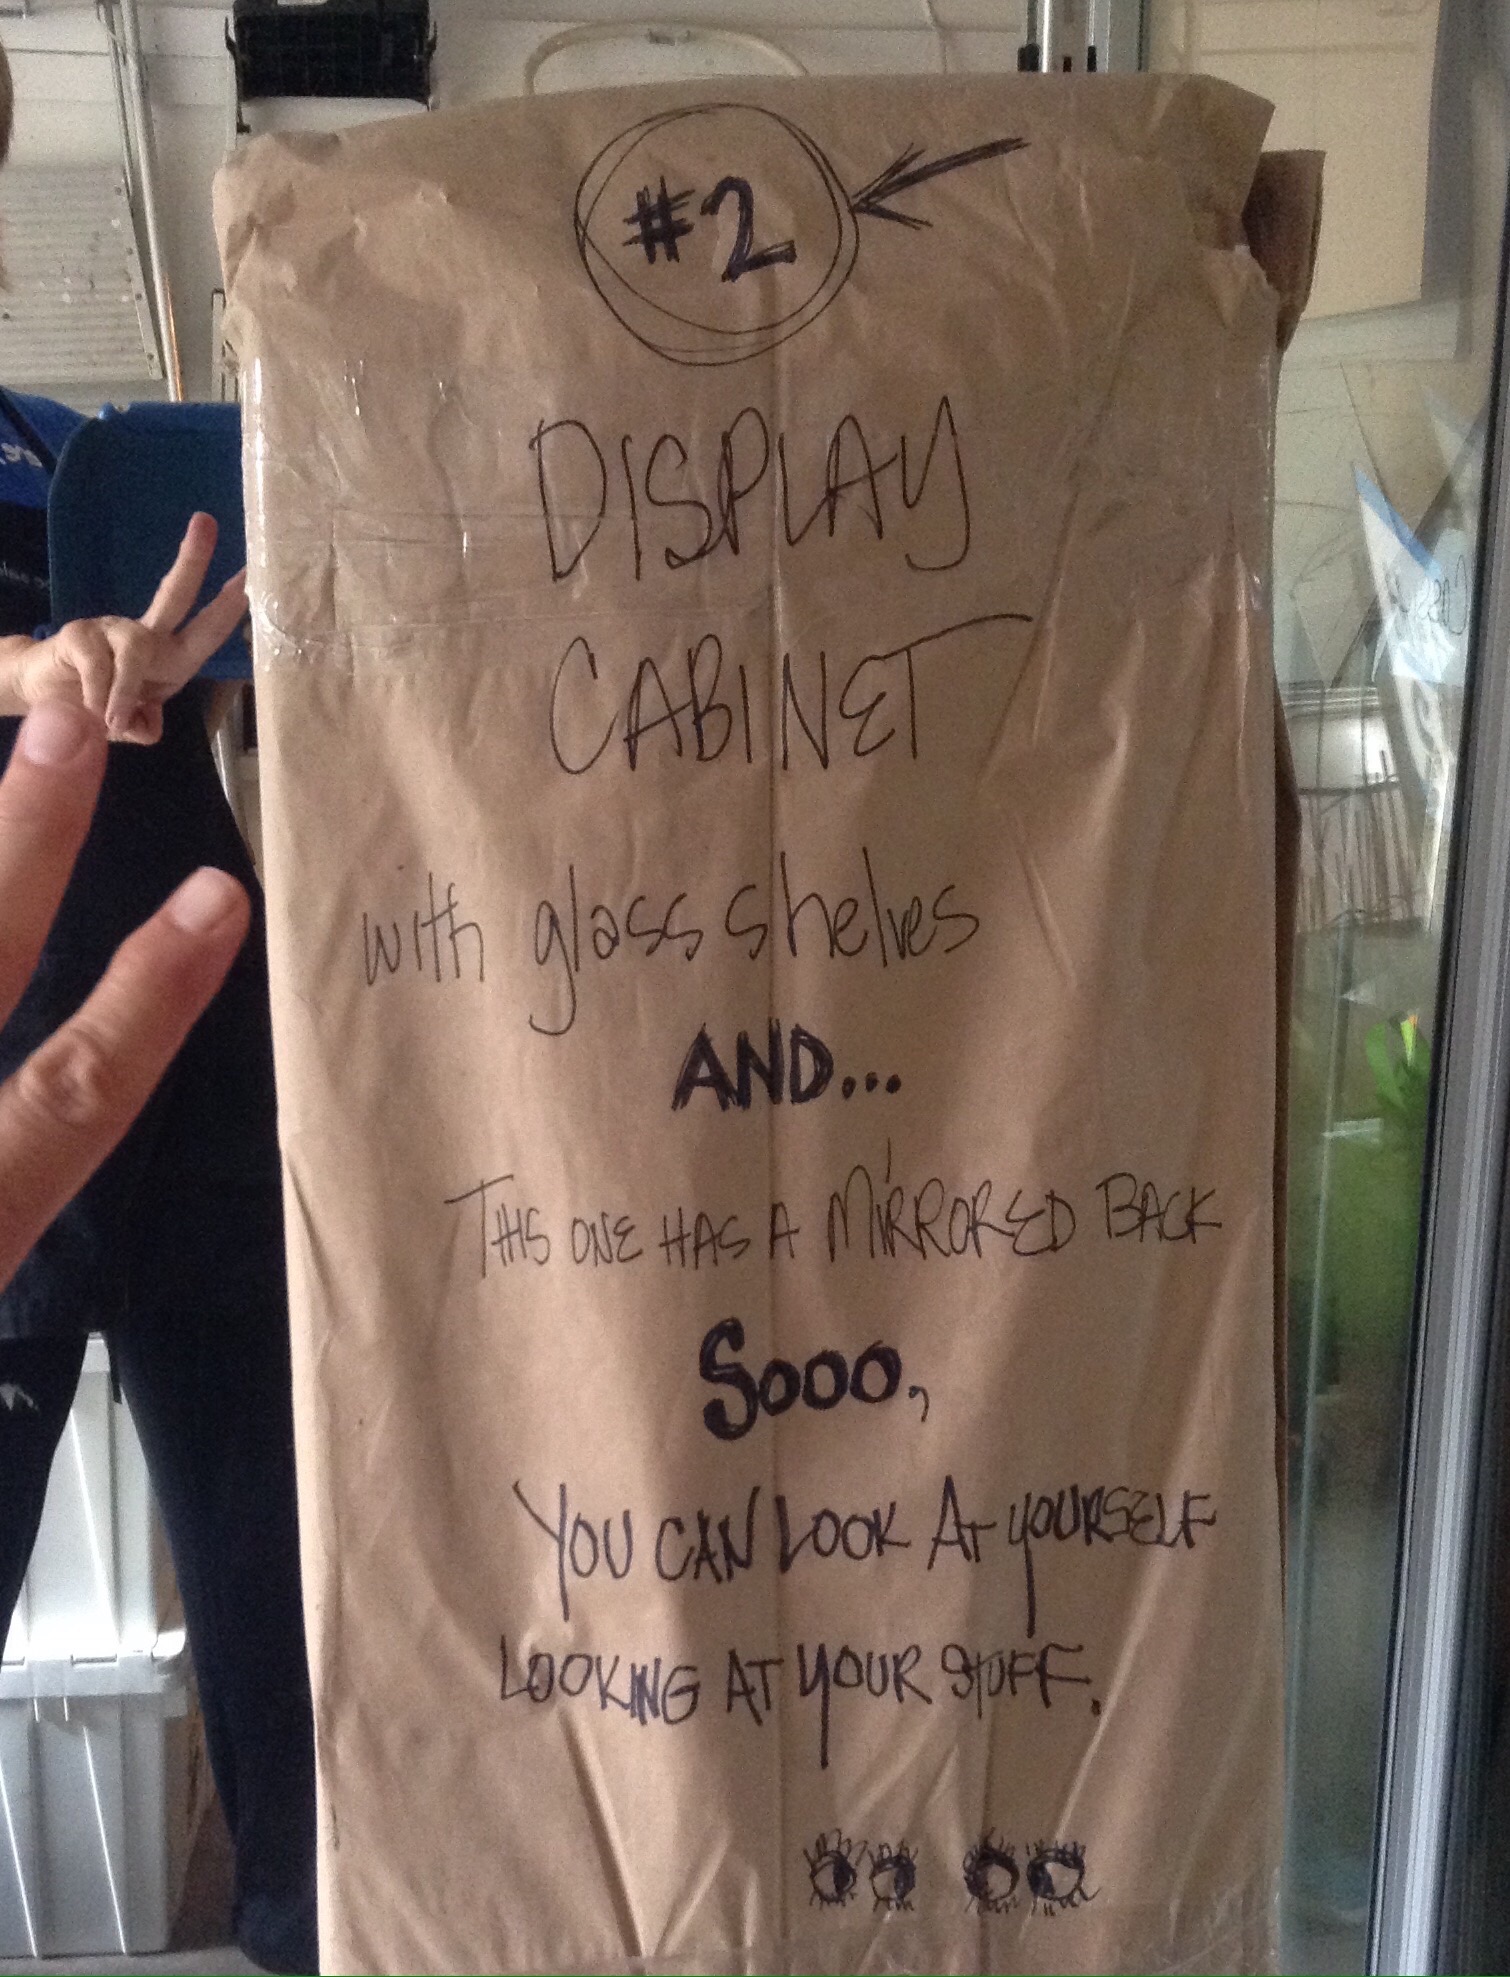 #2
DISPLAY
CABINET
with glass shelves
AND...
THIS ONE HAS A MIRRORED BACK
Sooo,
YOU CAN LOOK AT YOURSELF
LOOKING AT YOUR STUFF.